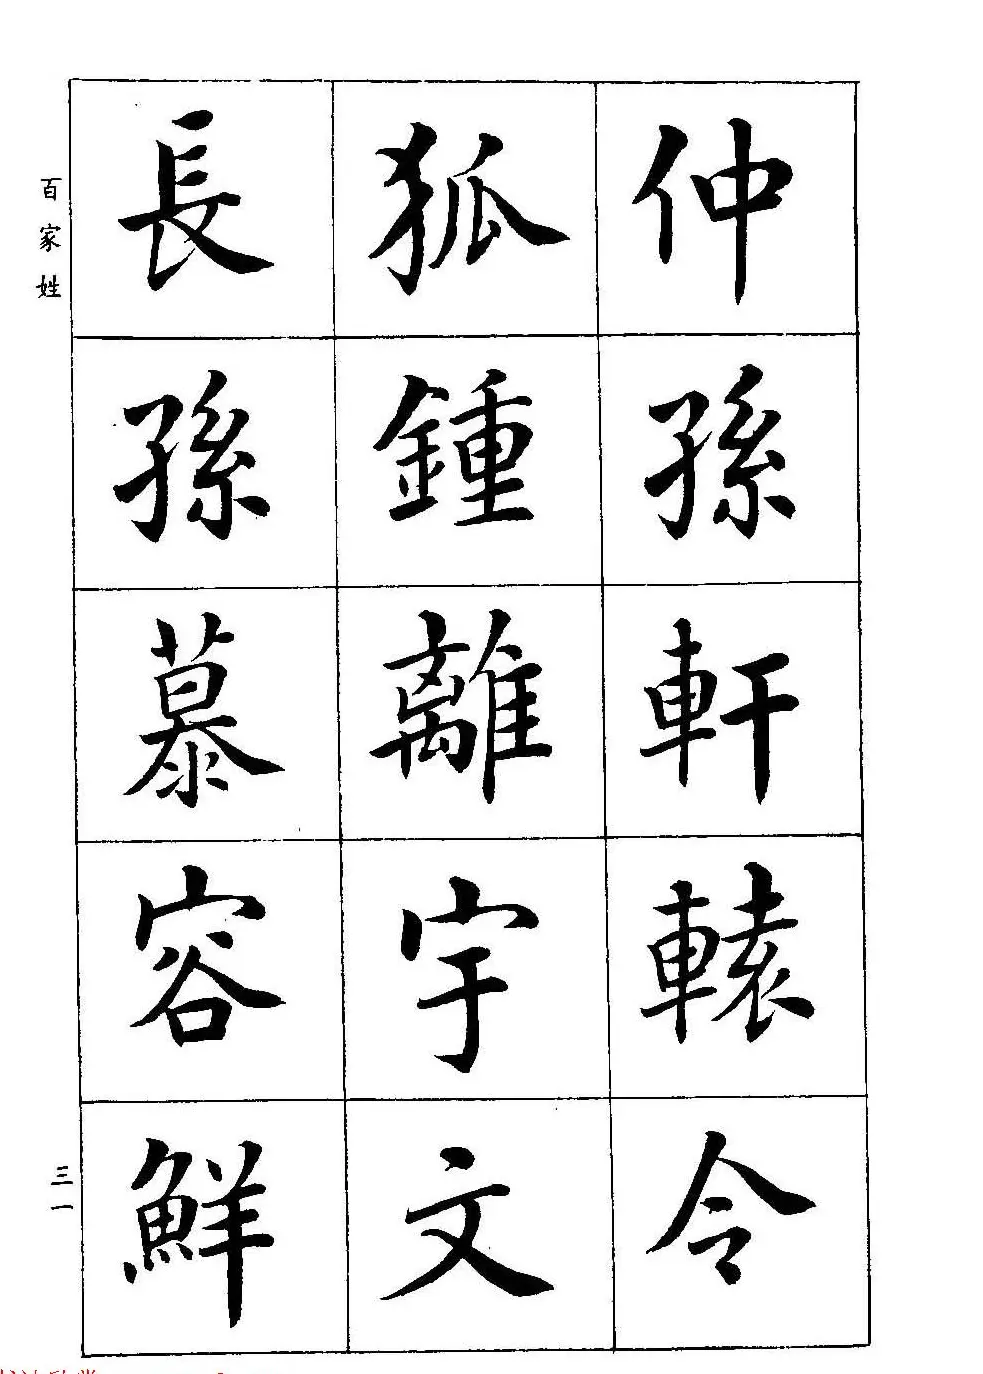 仲孫軒轅令
狐鍾離宇文
長孫慕容鮮
百家姓
三一